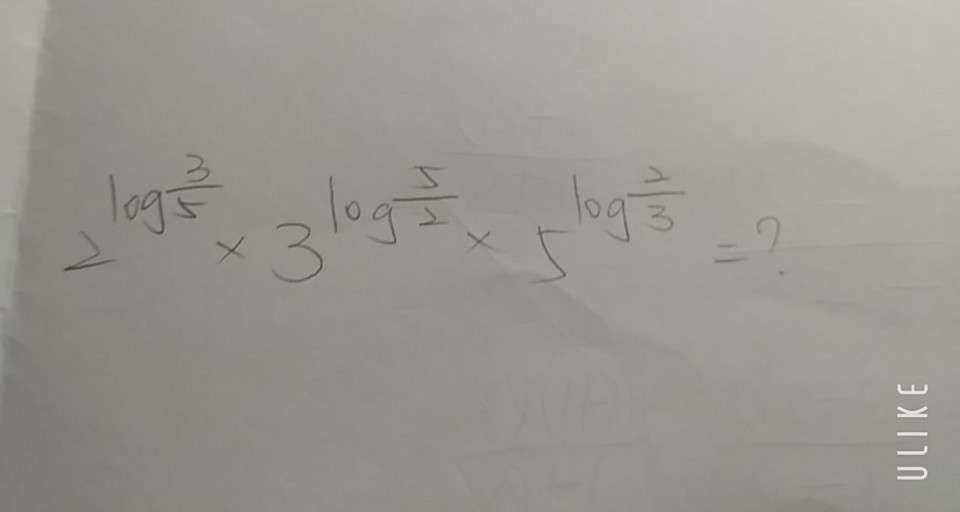 2^{log\frac{3}{5}} × 3^{log\frac{5}{2}} × 5^{log\frac{2}{3}} = ?
ULIKE